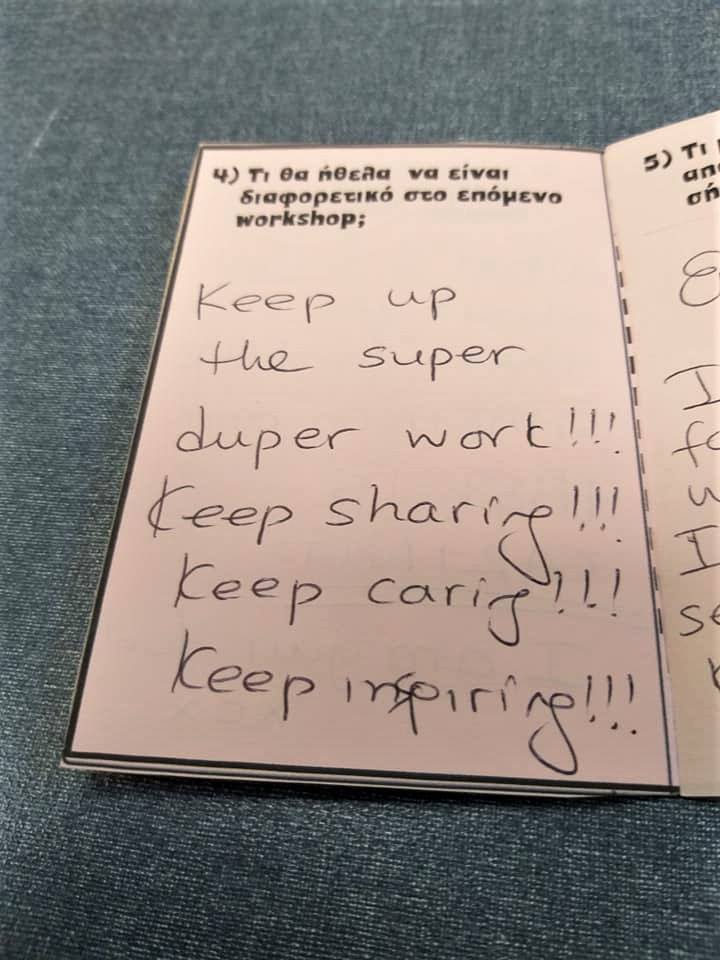 4) Τι θα ήθελα να είναι
διαφορετικό στο επόμενο
workshop;
Keep up
the super
duper work!!!
Keep sharing!!!
Keep carig!!!
Keep inspiring!!!
5) Τι